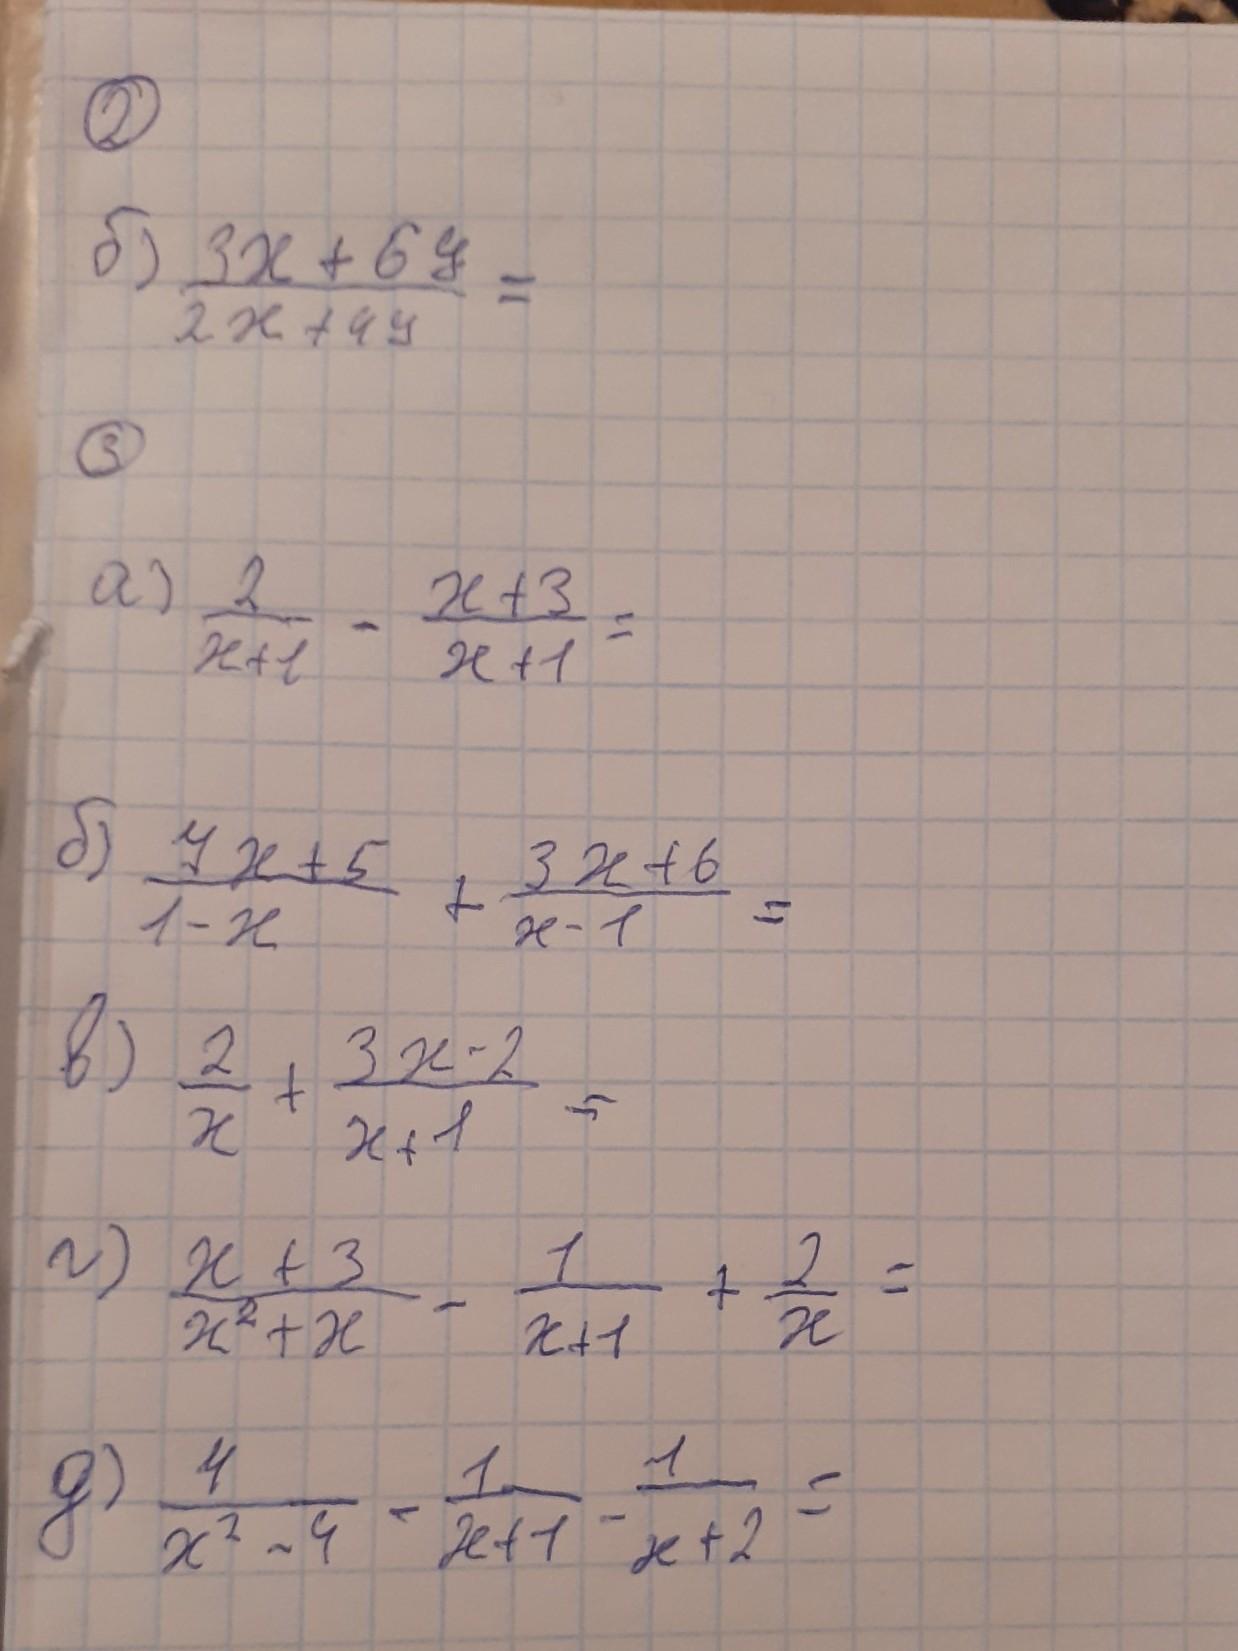 2
б) (3x + 6y)/(2x + 4y) =
3
а) 2/(x+1) - (x+3)/(x+1) =
б) (7x+5)/(1-x) + (3x+6)/(x-1) =
в) 2/x + (3x-2)/(x+1) =
г) (x+3)/(x²+x) - 1/(x+1) + 2/x =
д) 4/(x²-4) - 1/(x+1) - 1/(x+2) =